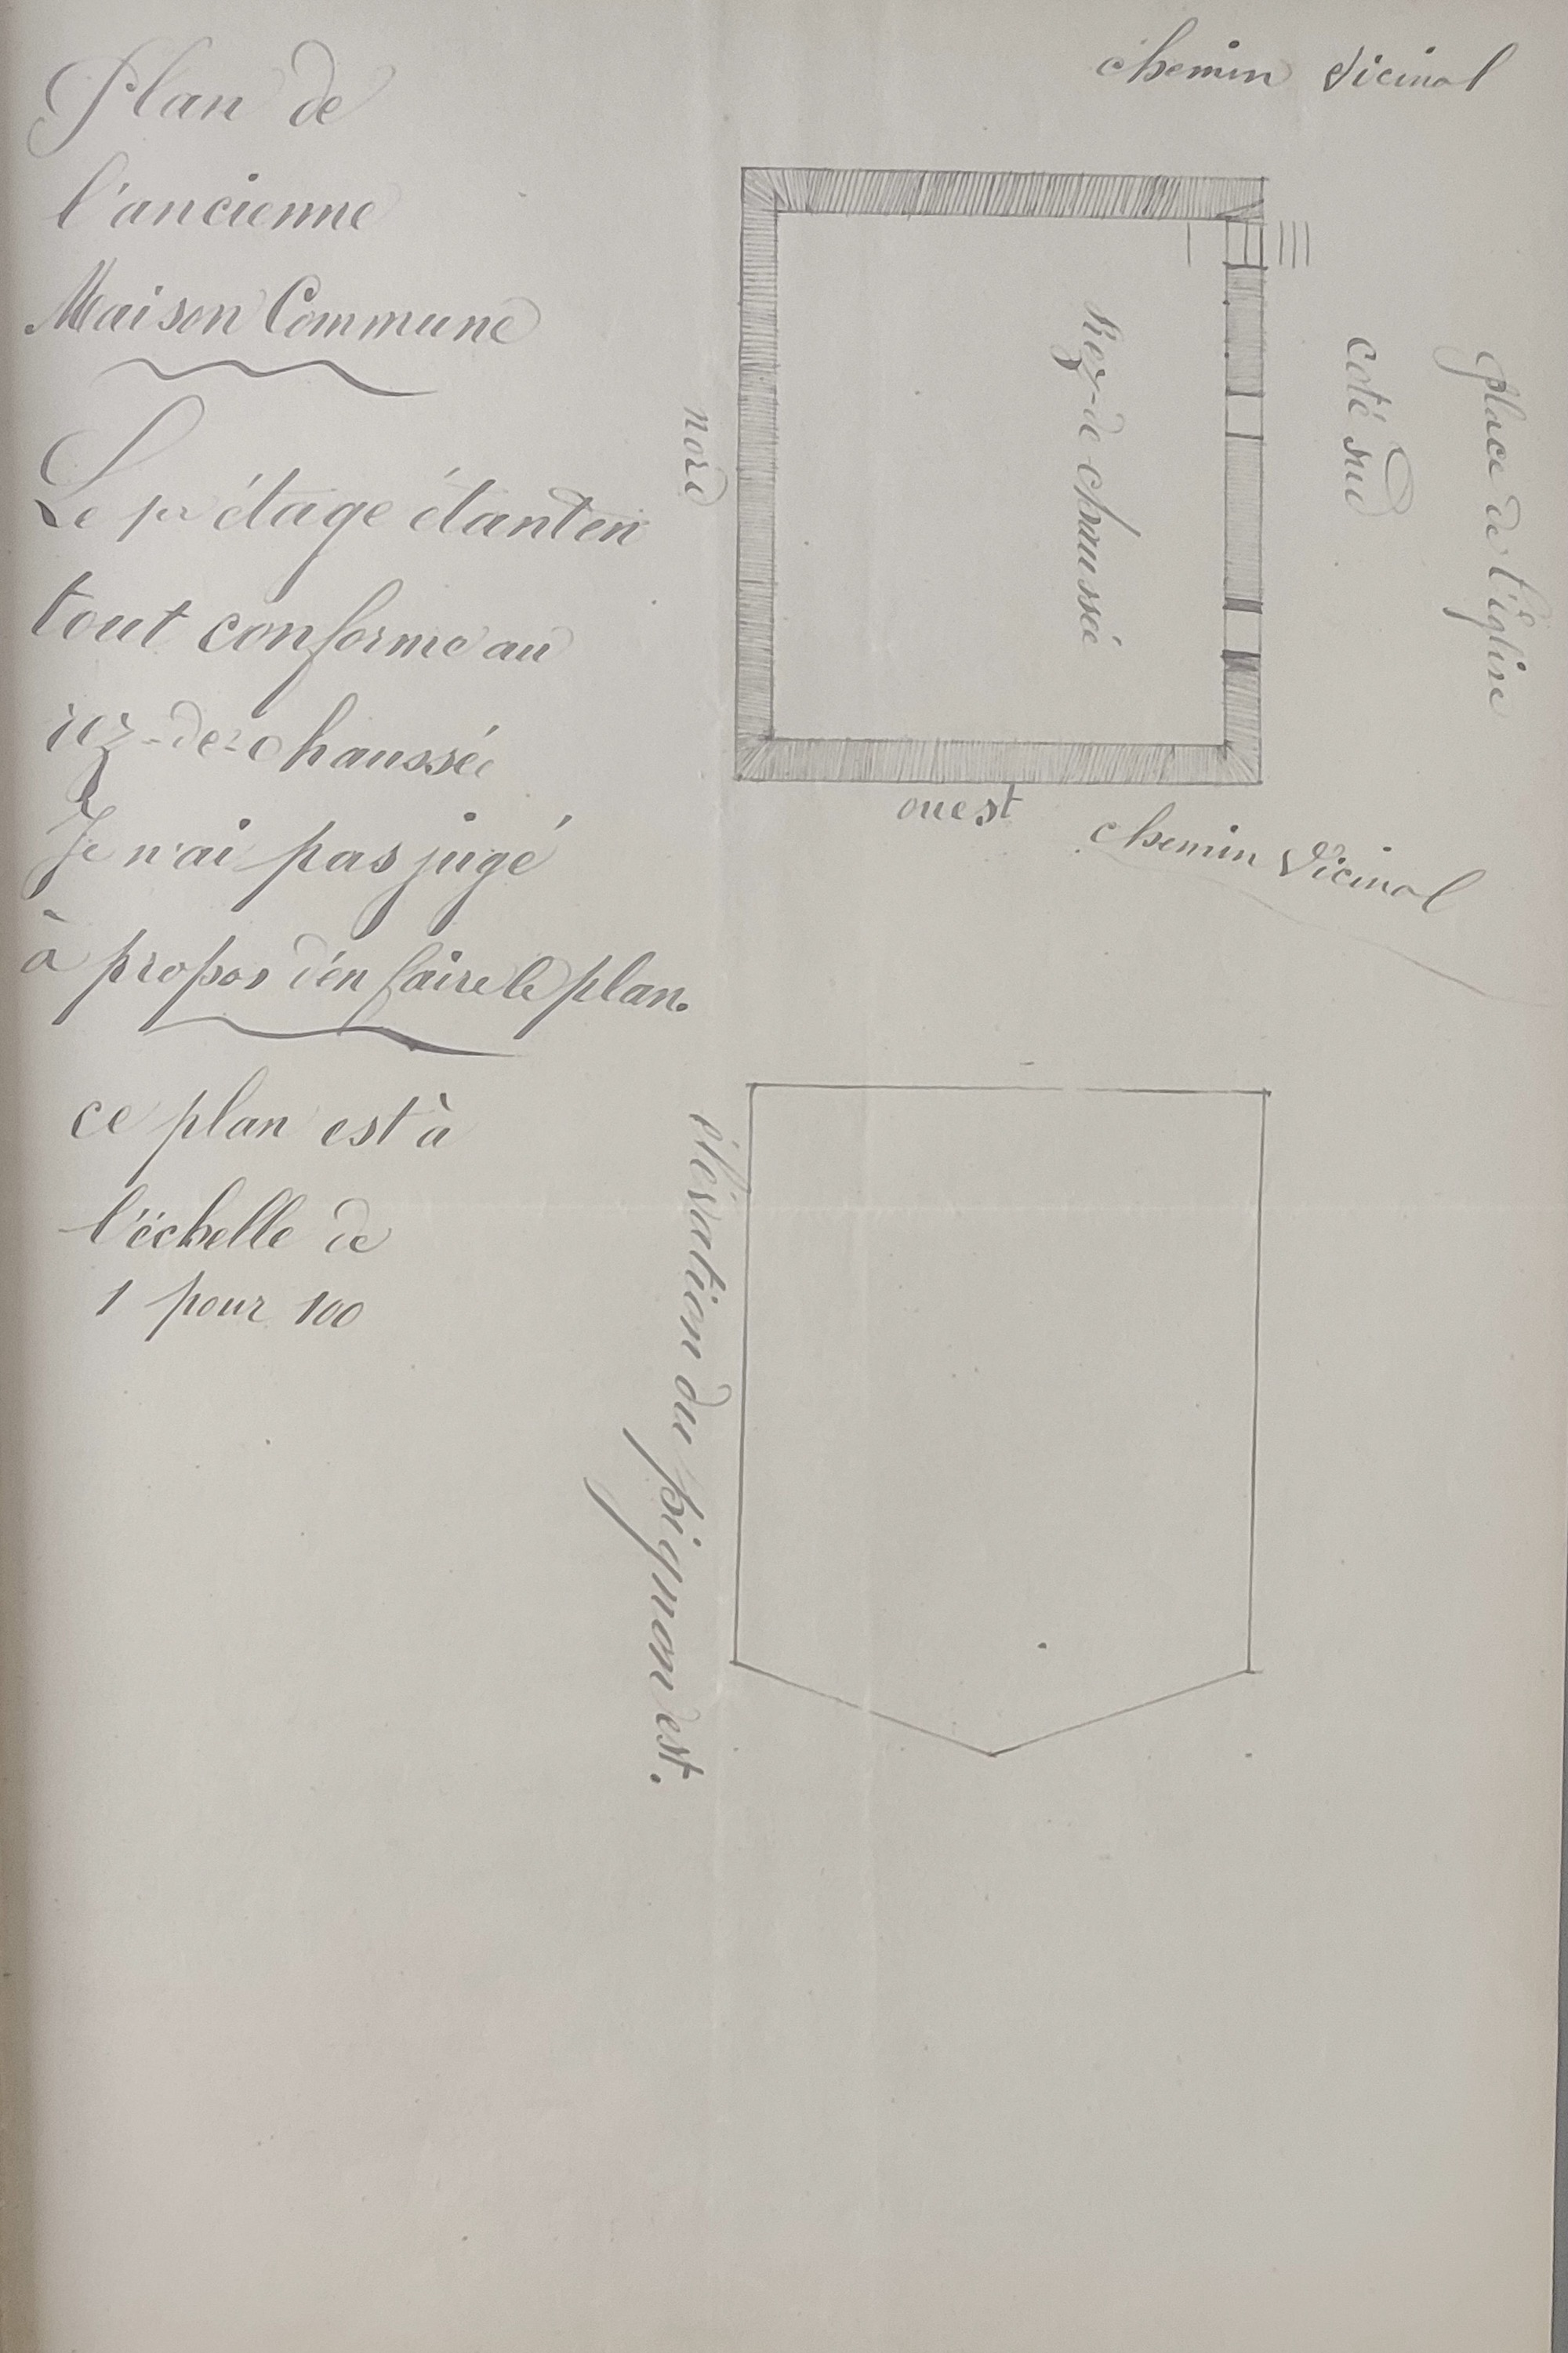 Plan de
l'ancienne
Maison Commune
Le 1er étage étant en
tout conforme au
rez-de-chaussée
Je n'ai pas jugé
à propos d'en faire le plan.
ce plan est à
l'échelle de
1 pour 100
chemin Vicinal
nord
Rez-de chaussée
coté sud
place de l'église
ouest
chemin Vicinal
élévation du pignon est.